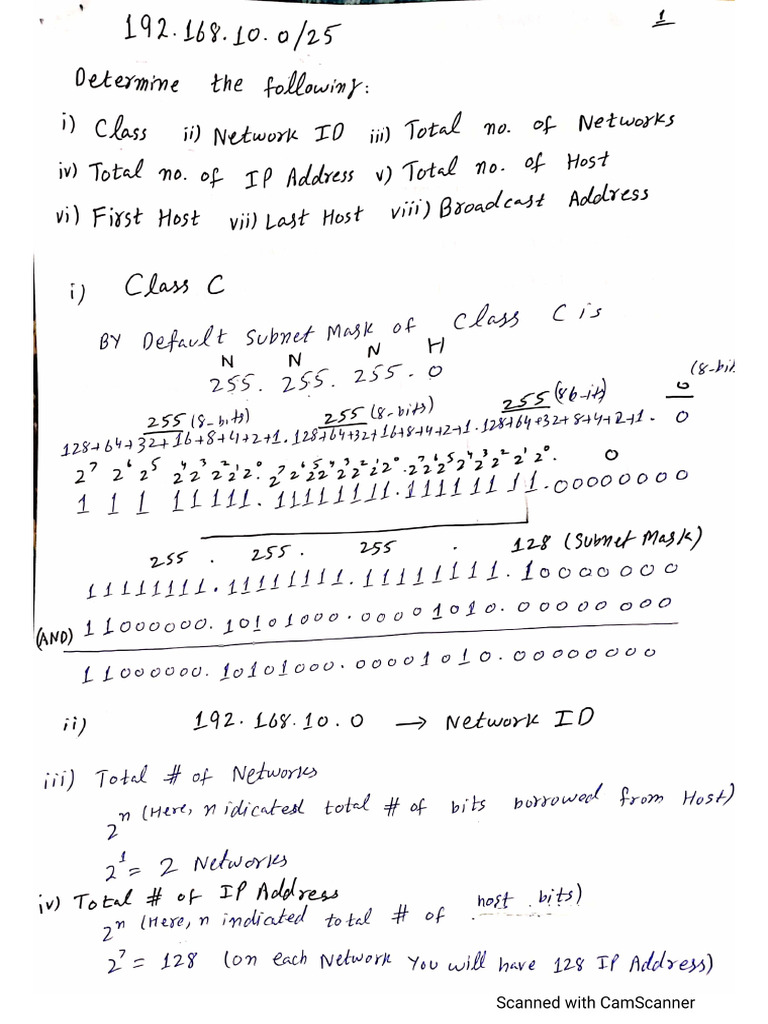 1
192.168.10.0/25
Determine the following:
i) Class ii) Network ID iii) Total no. of Networks
iv) Total no. of IP Address v) Total no. of Host
vi) First Host vii) Last Host viii) Broadcast Address
i) Class C
BY Default Subnet Mask of Class C is
N N N H
255. 255. 255. 0
255 (8-bits) 255 (8-bits) 255 (8b-its) 0 (8-bit
128+64+32+16+8+4+2+1. 128+64+32+16+8+4+2+1. 128+64+32+8+4+2+1. 0
2⁷ 2⁶ 2⁵ 2⁴ 2³ 2² 2¹ 2⁰. 2⁷ 2⁶ 2⁵ 2⁴ 2³ 2² 2¹ 2⁰. 2⁷ 2⁶ 2⁵ 2⁴ 2³ 2² 2¹ 2⁰. 0
1 1 1 1 1 1 1 1. 11111111. 11111111. 00000000
255 . 255 . 255 . 128 (Subnet Mask)
11111111. 11111111. 11111111. 10000000
(AND) 11000000. 10101000. 00001010. 00000000
11000000. 10101000. 00001010. 00000000
ii) 192.168.10.0 → Network ID
iii) Total # of Networks
2ⁿ (Here, n idicated total # of bits borrowed from Host)
2¹ = 2 Networks
iv) Total # of IP Address
2ⁿ (Here, n indicated total # of host bits)
2⁷ = 128 (on each Network You will have 128 IP Address)
Scanned with CamScanner